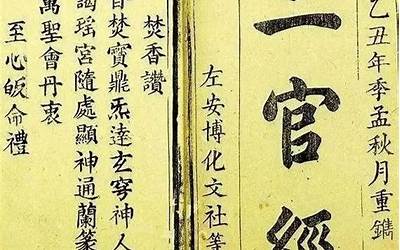 乙丑年季孟秋月重鐫
官經
左安博化文社等
焚香讚
焚寶鼎炁達玄穹神人
謁瑤宮隨處顯神通蘭篆
萬聖會丹衷
至心皈命禮